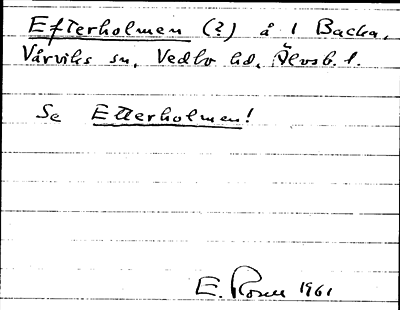 Efterholmen (?) å 1 Backa,
Vårviks sn, Vedbo hd, Älvsb. l.
Se Etterholmen!
E. Rosell 1961